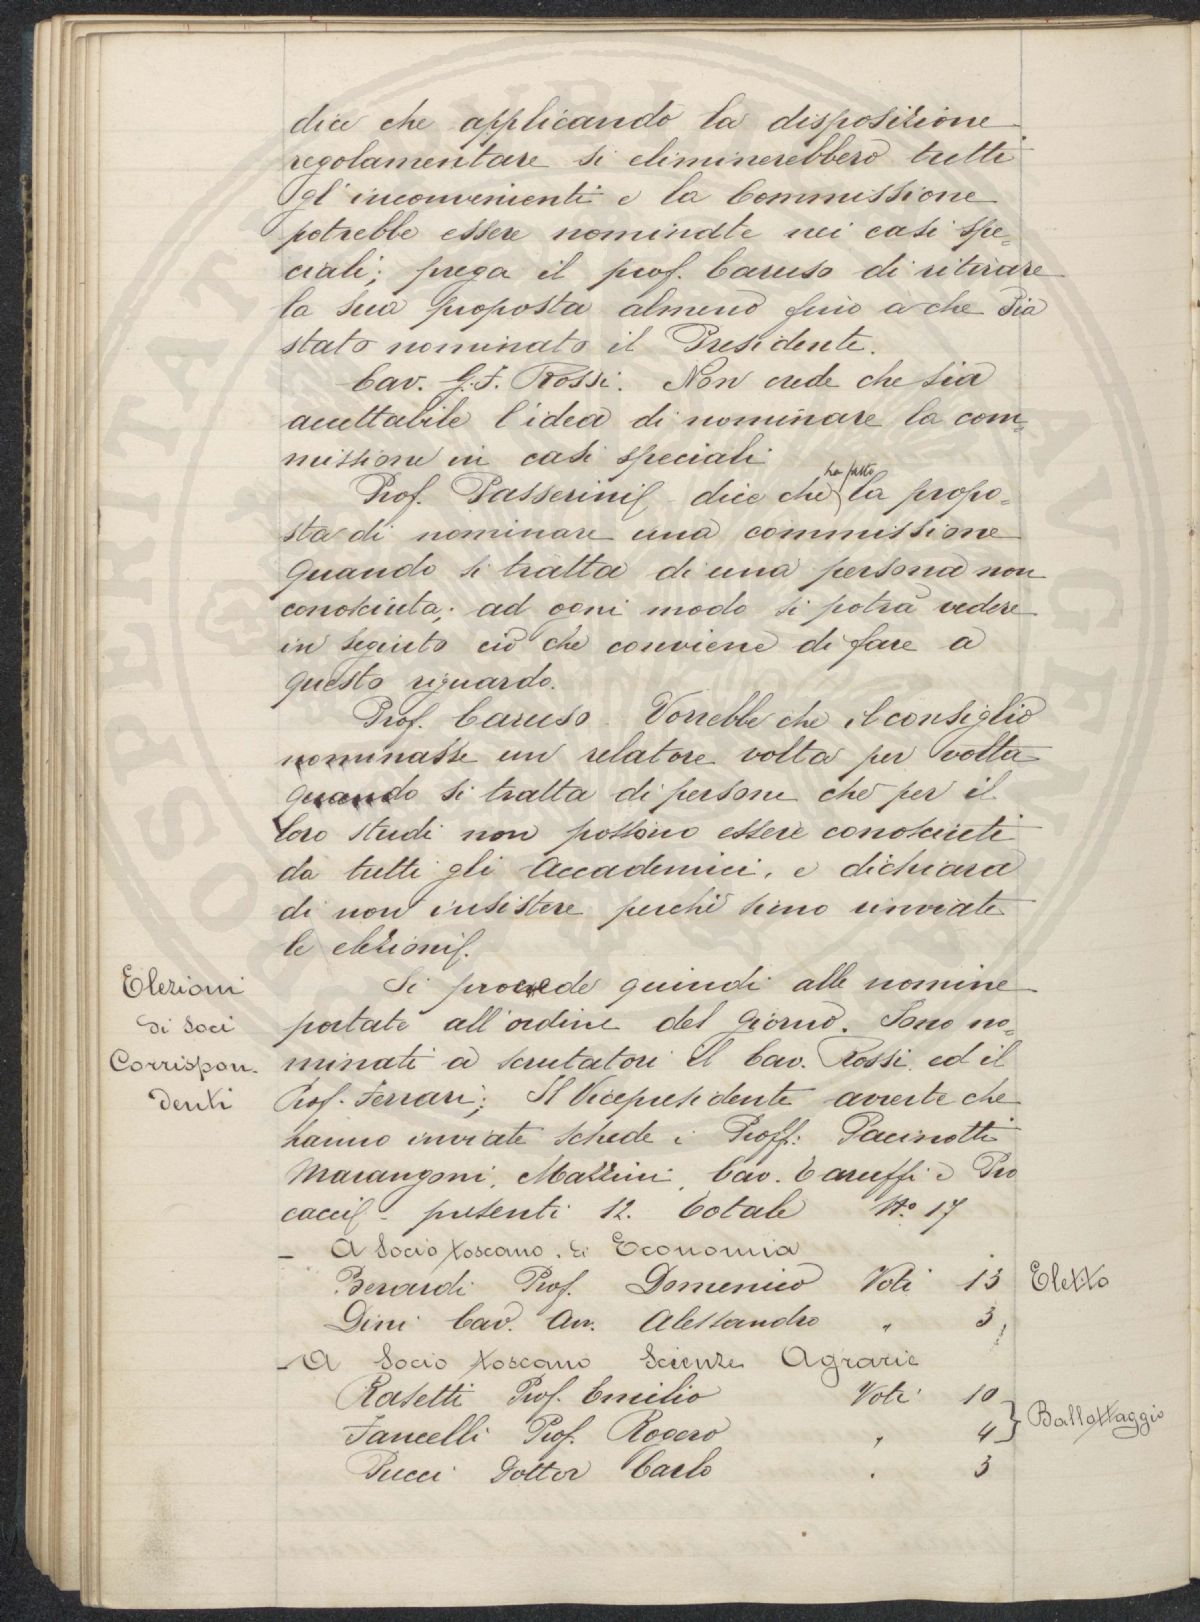 dice che applicando la disposizione
regolamentare si eliminerebbero tutti
gl'inconvenienti e la Commissione
potrebbe essere nominate nei casi spe-
ciali; prega il prof. Caruso di ritirare
la sua proposta almeno fino a che sia
stato nominato il Presidente.
Cav. G. F. Rossi. Non crede che sia
accettabile l'idea di nominare la com-
missione in casi speciali
Prof. Passerini dice che ha fatto la propo-
sta di nominare una commissione
quando si tratta di una persona non
conosciuta; ad ogni modo si potrà vedere
in seguito ciò che conviene di fare a
questo riguardo.
Prof. Caruso. Vorrebbe che il consiglio
nominasse un relatore volta per volta
quando si tratta di persone che per il
loro studi non possono essere conosciuti
da tutti gli Accademici, e dichiara
di non insistere perchè sieno rinviate
le elezioni.
Elezioni
di Soci
Corrispon-
denti
Si procede quindi alle nomine
portate all'ordine del giorno. Sono no-
minati a scrutatori il Cav. Rossi ed il
Prof. Ferrari; Il Vicepresidente avverte che
hanno inviate schede i Proff: Pacinotti
Marangoni, Mazzini, Cav. Caruffi e Pro
cacci - presenti 12. Totale N.º 17
- A Socio toscano di Economia
Berardi Prof. Domenico Voti 13 Eletto
Dini Cav. Avv. Alessandro " 3
- A Socio toscano Scienze Agrarie
Rasetti Prof. Emilio Voti 10
Fancelli Prof. Rogero " 4 } Ballottaggio
Pucci Dottor Carlo " 3
SOSPERITAT